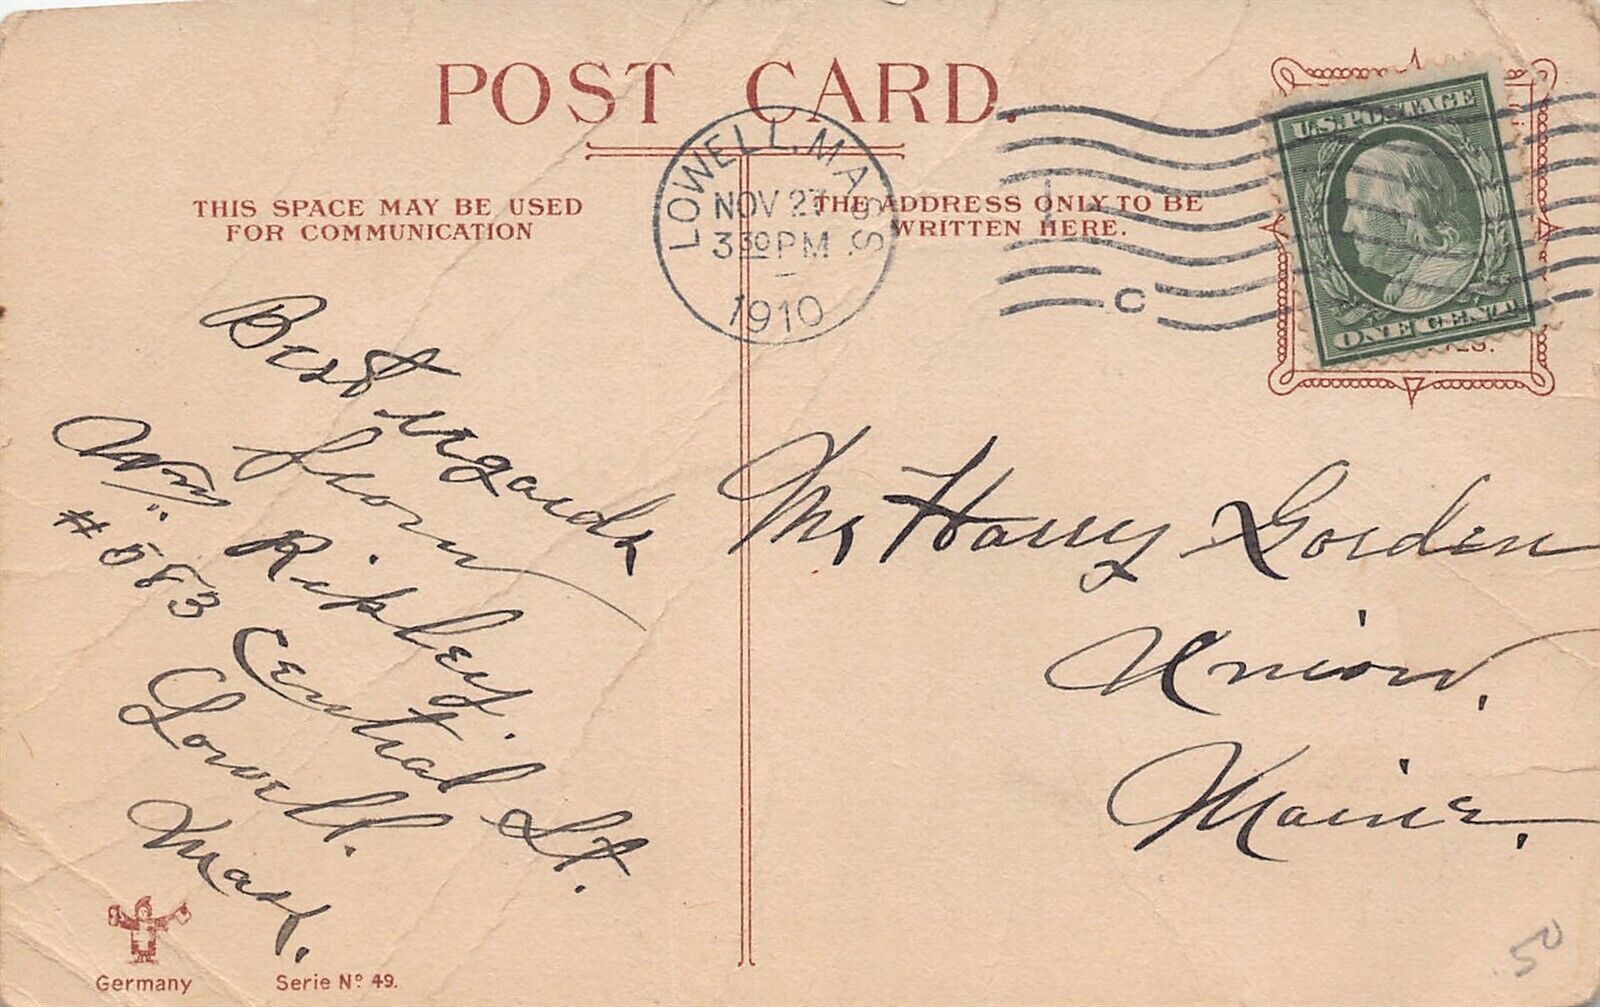 POST CARD.
THIS SPACE MAY BE USED
FOR COMMUNICATION
THE ADDRESS ONLY TO BE
WRITTEN HERE.
LOWELL, MASS
NOV 27
3 30 PM
1910
C
U.S. POSTAGE
ONE CENT
Best regards
from
Wm Ripley.
#583 Central St.
Lowell.
Mass.
Mr Harry Gorden
Union,
Maine,
Germany
Serie No 49.
.50